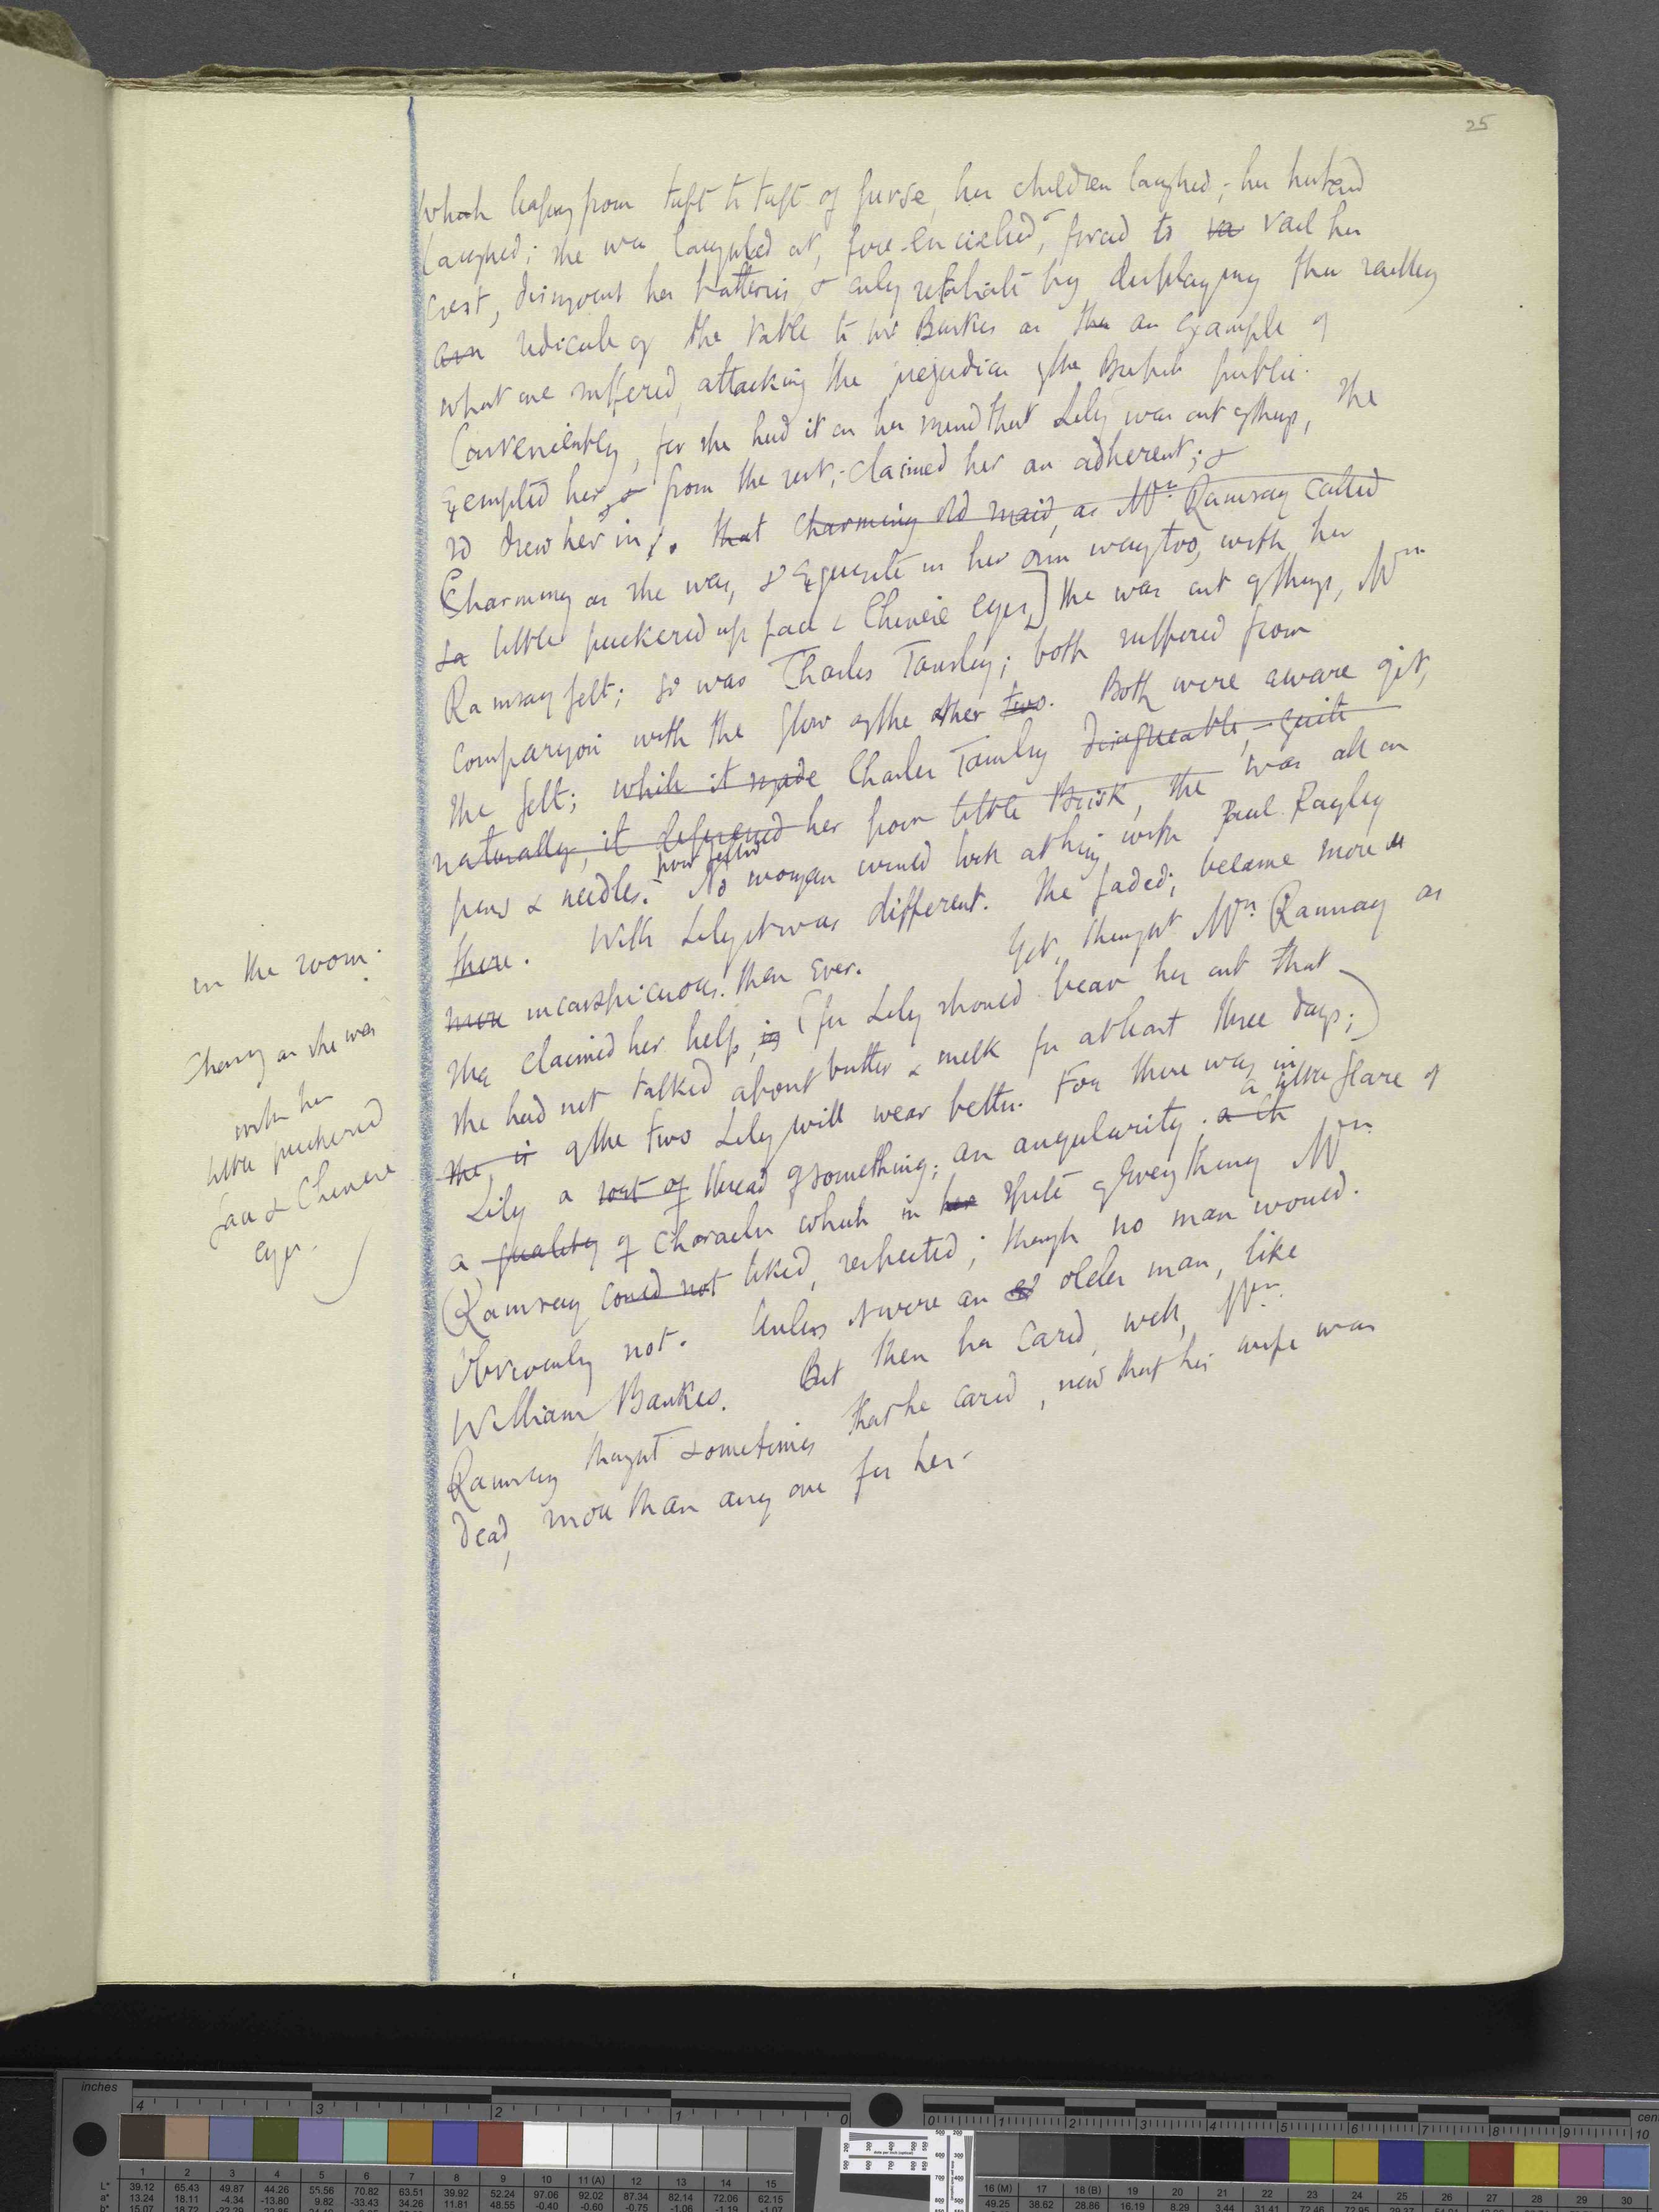 25
which leaping from tuft to tuft of furze, her children laughed; her husband
laughed; she was laughed at, fire-encircled, forced to va vail her
crest, dismount her batteries, & only retaliate by displaying the raillery
and ridicule of the table to Mr Bankes as the an example of
what one suffered, attacking the prejudices of the British public.
Conveniently, for she had it on her mind that Lily was out of things, she
exempted her, & from the rest; claimed her an adherent; &
so drew her in. that charming old maid, as Mrs. Ramsay called
Charming as she was, & exquisite in her own way too, with her
little puckered up face & Chinese eyes,] she was out of things, Mrs.
Ramsay felt; so was Charles Tansley; both suffered from
comparyon with the glow of the other two. Both were aware of it,
she felt; while it made Charles Tansley disagreeable, quite
naturally, it her from little Brisk, the was all on
pins & needles. No woman would look at him with Paul Rayley
there. With Lily it was different. She faded; became more
more inconspicuous. than ever. Yet, thought Mrs. Ramsay as
she claimed her help, (for Lily should bear her out that
she had not talked about butter & milk for at least three days;)
she, is of the two Lily will wear better. For there was in
Lily a sort of thread of something; an angularity; a ch a little flare of
a quality of character which in her spite of everything Mrs.
Ramsay could not liked, respected; though no man would.
Obviously not. Unless it were an ol older man, like
William Bankes. But then he cared, well, Mrs.
Ramsay thought sometimes that he cared, now that his wife was
dead, more than any one for her.
in the room.
Charmg as she was
with her
little puckered
face & Chinese
eyes.
inches
4 3 2 1 0
0 1 2 3 4 5 6 7 8 9 10
1 2 3 4 5 6 7 8 9 10 11 (A) 12 13 14 15
16 (M) 17 18 (B) 19 20 21 22 23 24 25 26 27 28 29 30
L* 39.12 65.43 49.87 44.26 55.56 70.82 63.51 39.92 52.24 97.06 92.02 87.34 82.14 72.06 62.15
a* 13.24 18.11 -4.34 -13.80 9.82 -33.43 34.26 11.81 48.55 -0.40 -0.60 -0.75 -1.06 -1.19 -1.07
49.25 38.62 28.86 16.19 8.29 3.44 31.41 72.46 72.95